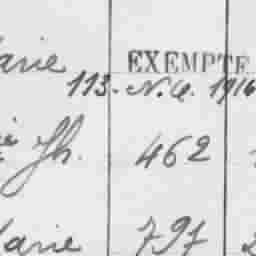 arie EXEMPTE
113. N.Q. 1916
Jh. 462
Marie 797